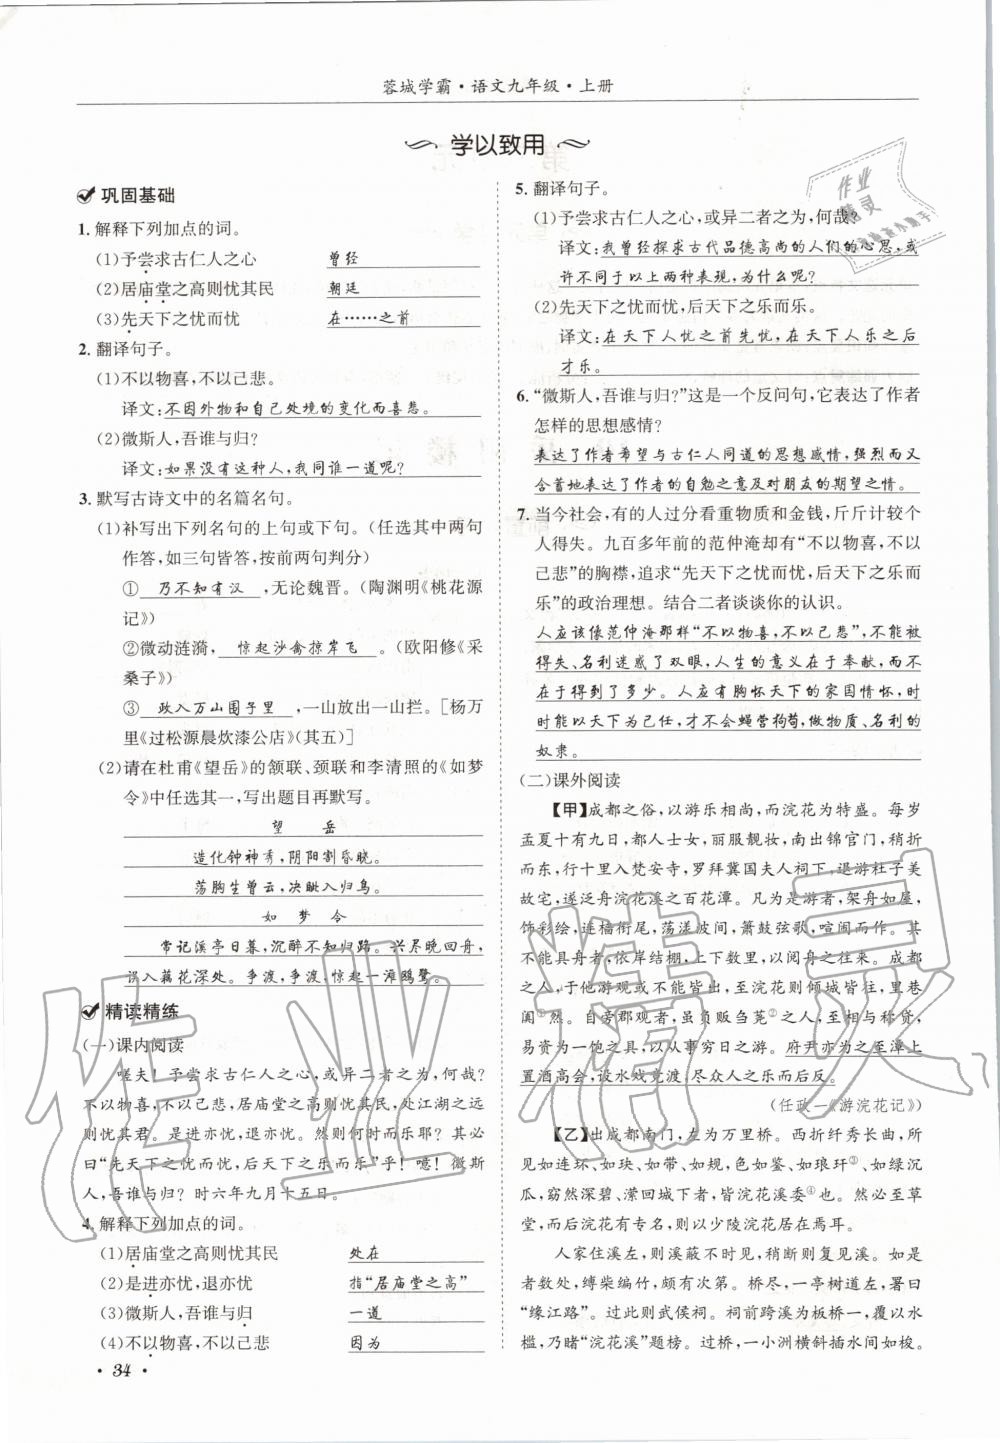 蓉城学霸·语文九年级·上册
学以致用
巩固基础
1. 解释下列加点的词。
(1)予尝求古仁人之心 曾经
(2)居庙堂之高则忧其民 朝廷
(3)先天下之忧而忧 在……之前
2. 翻译句子。
(1)不以物喜,不以己悲。
译文:不因外物和自己处境的变化而喜悲。
(2)微斯人,吾谁与归?
译文:如果没有这种人,我同谁一道呢?
3. 默写古诗文中的名篇名句。
(1)补写出下列名句的上句或下句。(任选其中两句
作答,如三句皆答,按前两句判分)
①乃不知有汉,无论魏晋。(陶渊明《桃花源
记》)
②微动涟漪,惊起沙禽掠岸飞。(欧阳修《采
桑子》)
③政入万山围子里,一山放出一山拦。[杨万
里《过松源晨炊漆公店》(其五)]
(2)请在杜甫《望岳》的颔联、颈联和李清照的《如梦
令》中任选其一,写出题目再默写。
望 岳
造化钟神秀,阴阳割昏晓。
荡胸生曾云,决眦入归鸟。
如 梦 令
常记溪亭日暮,沉醉不知归路。兴尽晚回舟,
误入藕花深处。争渡,争渡,惊起一滩鸥鹭。
精读精练
(一)课内阅读
嗟夫!予尝求古仁人之心,或异二者之为,何哉?
不以物喜,不以己悲,居庙堂之高则忧其民,处江湖之远
则忧其君。是进亦忧,退亦忧。然则何时而乐耶?其必
曰“先天下之忧而忧,后天下之乐而乐”乎!噫!微斯
人,吾谁与归?时六年九月十五日。
4. 解释下列加点的词。
(1)居庙堂之高则忧其民 处在
(2)是进亦忧,退亦忧 指“居庙堂之高”
(3)微斯人,吾谁与归 一道
(4)不以物喜,不以己悲 因为
· 34 ·
5. 翻译句子。
(1)予尝求古仁人之心,或异二者之为,何哉?
译文:我曾经探求古代品德高尚的人们的心思,或
许不同于以上两种表现,为什么呢?
(2)先天下之忧而忧,后天下之乐而乐。
译文:在天下人忧之前先忧,在天下人乐之后
才乐。
6. “微斯人,吾谁与归?”这是一个反问句,它表达了作者
怎样的思想感情?
表达了作者希望与古仁人同道的思想感情,强烈而又
含蓄地表达了作者的自勉之意及对朋友的期望之情。
7. 当今社会,有的人过分看重物质和金钱,斤斤计较个
人得失。九百多年前的范仲淹却有“不以物喜,不以
己悲”的胸襟,追求“先天下之忧而忧,后天下之乐而
乐”的政治理想。结合二者谈谈你的认识。
人应该像范仲淹那样“不以物喜,不以己悲”,不能被
得失、名利迷惑了双眼,人生的意义在于奉献,而不
在于得到了多少。人应有胸怀天下的家国情怀,时
时能以天下为己任,才不会蝇营狗苟,做物质、名利的
奴隶。
(二)课外阅读
【甲】成都之俗,以游乐相尚,而浣花为特盛。每岁
孟夏十有九日,都人士女,丽服靓妆,南出锦官门,稍折
而东,行十里入梵安寺,罗拜冀国夫人祠下,退游杜子美
故宅,遂泛舟浣花溪之百花潭。凡为是游者,架舟如屋,
饰彩绘,连樯衔尾,荡漾波间,箫鼓弦歌,喧闹而作。其
不能具舟者,依岸结棚,上下数里,以阅舟之往来。成都
之人,于他游观或不能皆出,至浣花则倾城皆往,里巷
阒①然。自旁郡观者,虽负贩刍荛②之人,至相与称贷,
易资为一饱之具,以从事穷日之游。府尹亦为之至潭上
置酒高会,设水戏竞渡,尽众人之乐而后反。
(任政一《游浣花记》)
【乙】出成都南门,左为万里桥。西折纤秀长曲,所
见如连环、如玦、如带、如规,色如鉴、如琅玕③、如绿沉
瓜,窈然深碧、潆回城下者,皆浣花溪委④也。然必至草
堂,而后浣花有专名,则以少陵浣花居在焉耳。
人家住溪左,则溪蔽不时见,稍断则复见溪。如是
者数处,缚柴编竹,颇有次第。桥尽,一亭树道左,署曰
“缘江路”。过此则武侯祠。祠前跨溪为板桥一,覆以水
槛,乃睹“浣花溪”题榜。过桥,一小洲横斜插水间如梭。
作业
精灵
作业精灵